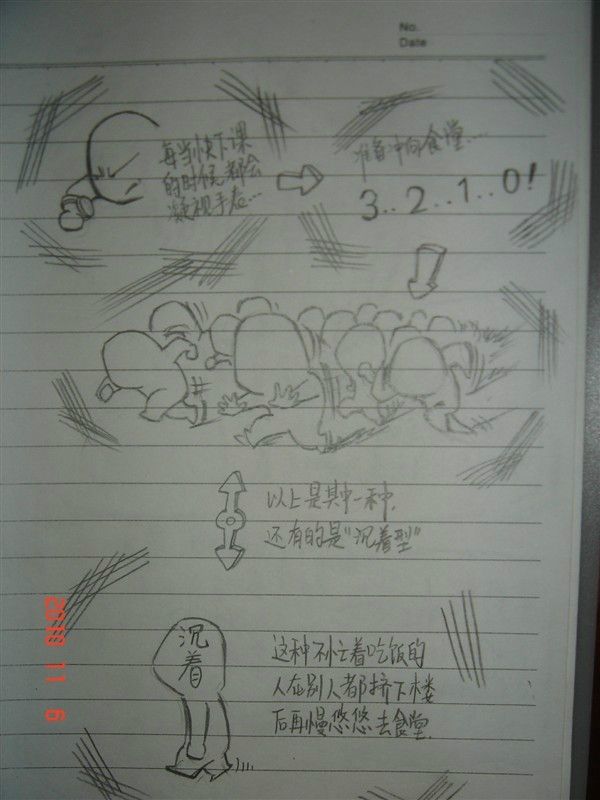 No.
Date
每当快下课
的时候,都会
凝视手表…
准备冲向食堂....
3..2..1..0!
以上是其中一种.
还有的是"沉着型"
沉着
这种不忙着吃饭的
人在别人都挤下楼
后再慢悠悠去食堂.
2010 11 6